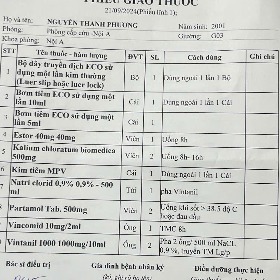 PHIẾU GIAO THUỐC
21/09/2024(Phiếu lĩnh 1);
Họ và tên: NGUYỄN THANH PHƯƠNG Năm sinh: 2001
Phòng: Phòng cấp cứu Nội A Giường: G03
Khoa phòng: Nội A
STT Tên thuốc - hàm lượng ĐVT SL Cách dùng Ghi chú
Bộ dây truyền dịch ECO sử
1 dụng một lần kim thường Bộ 1 Dùng ngoài 1 lần 1 Bộ
(Luer slip hoặc luer lock)
2 Bơm tiêm ECO sử dụng một Cái 1 Dùng ngoài 1 lần 1 Cái
lần 10ml
3 Bơm tiêm ECO sử dụng một Cái 1
lần 5ml
4 Estor 40mg 40mg Viên 1 Uống 8h
5 Kalium chloratum biomedica Viên 2 Uống 8h- 16h
500mg
6 Kim tiêm MPV Cái 1 Dùng ngoài 1 lần 1 Cái
7 Natri clorid 0,9% 0,9% - 500 Túi 1 pha Vintanil
ml
8 Partamol Tab. 500mg Viên 2 Uống khi sốt > 38.5 độ C
hoặc đau đầu
Vincomid 10mg/2ml Ống 1 TMC 8h
Vintanil 1000 1000mg/10ml Ống 2 Pha 2 ống/ 500 ml NaCL
0.9%, truyền TM Lg/p
Bác sĩ điều trị Gia đình bệnh nhân ký Điều dưỡng thực hiện